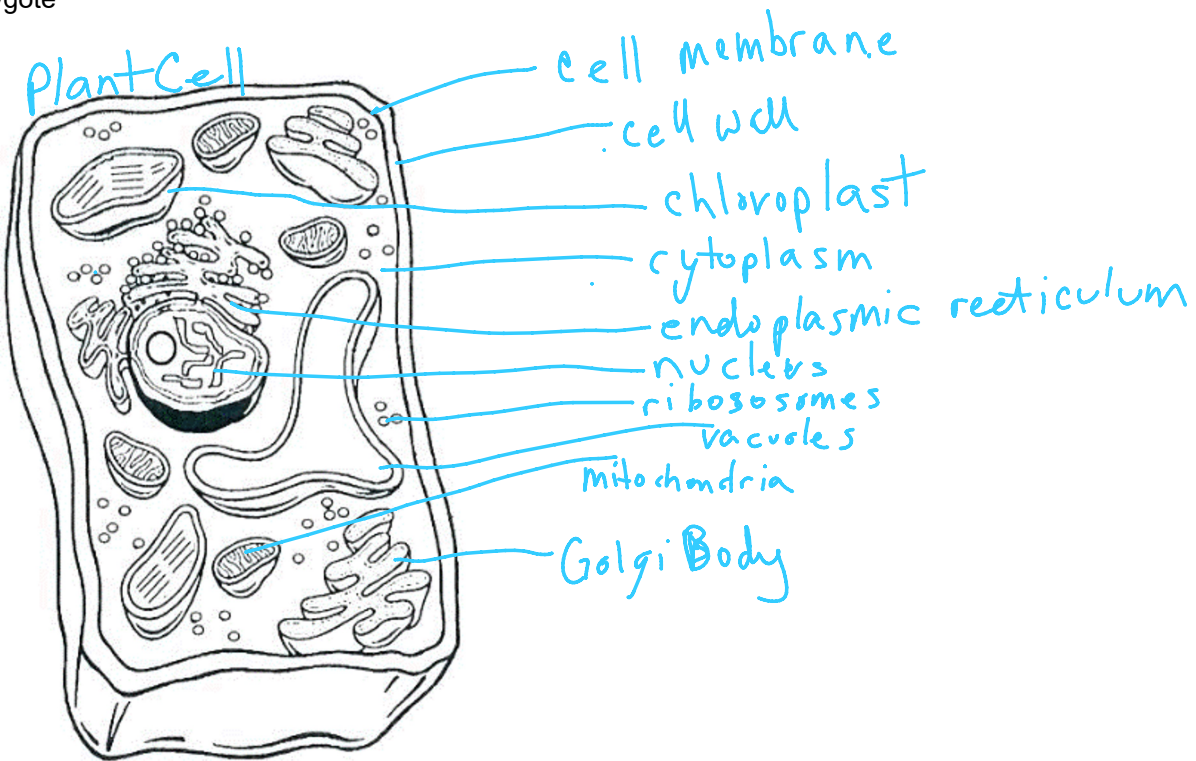 ygote
Plant Cell
cell membrane
cell wall
chloroplast
cytoplasm
endoplasmic reeticulum
nucleus
ribososomes
vacuoles
mitochondria
Golgi Body